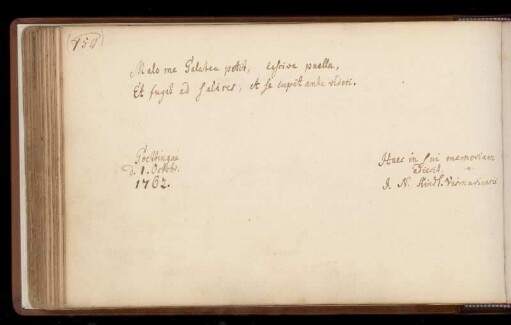 151
Malo me Galatea petit, lasciva puella,
Et fugit ad salices, et se cupit ante videri.
Goettingae
d. 1. Octobr.
1782.
Haec in sui memoriam
adiecit
J. N.